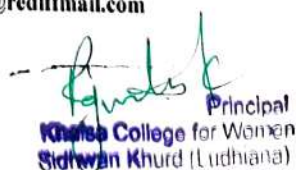 @rediffmail.com
Principal
Khalsa College for Women
Sidhwan Khurd (Ludhiana)